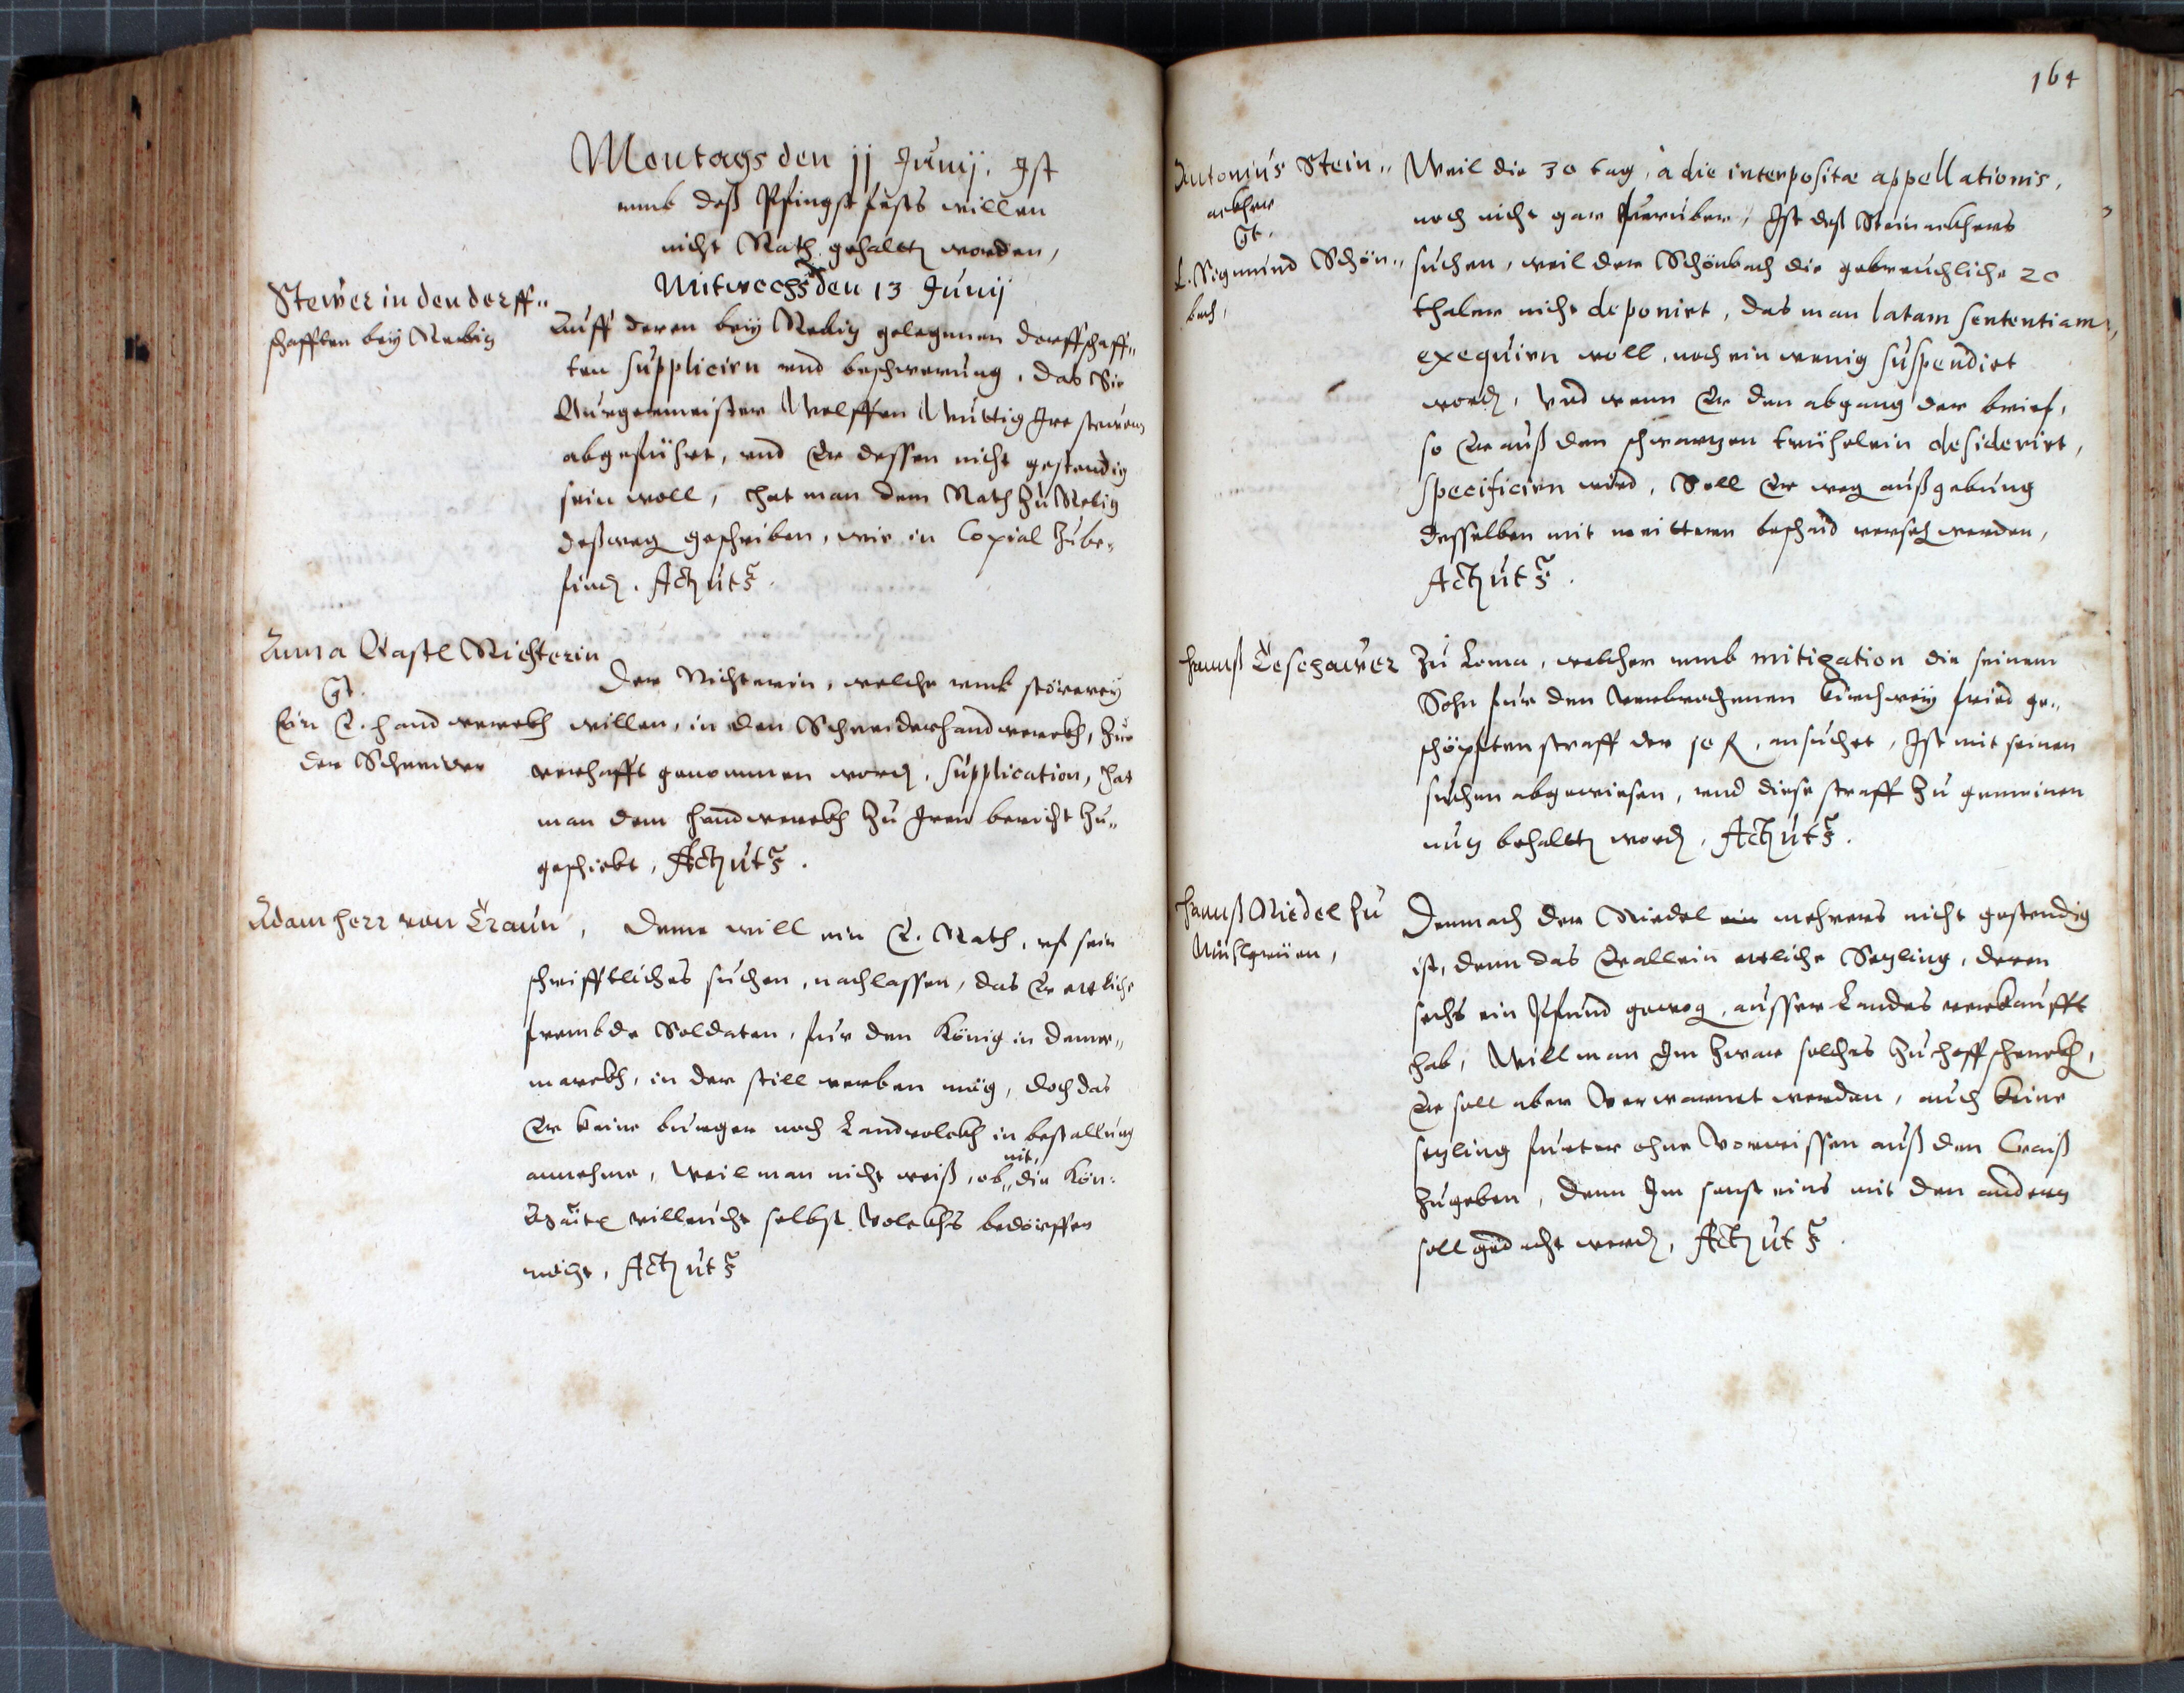 Montags den 11 Junij. Ist
umb deß Pfingstfests willen
nicht Rath gehalten worden,
Mitwochs den 13 Junij
Stewer in den derff„
schafften beÿ Redwitz
Auff deren beÿ Redwitz gelegenen dorffschaff„
ten supplicirn und beschwerung, das Sie
Burgermeister Wolffen Muttig Ire steuern
abgeführt, und Er dessen nicht gestendig
sein woll, hat man dem Rath zu Redwitz
deßweg geschriben, wie in Copial zube„
finden. Act. ut s.
Anna Bastl Richterin
Gt.
Ein E. handwerckh
der Schneider
Der Richterin, welche umb störereÿ
willen, in den Schneiderhandwerckh, zur
verhafft genommen worden, supplication, hat
man dem handwerckh zu Irem bericht zu„
geschickt, Act. ut s.
Adam herr von Traun,
Deme will ein E. Rath, uf sein
schrifftliches suchen, nachlassen, das Er etliche
frembde Soldaten, für den König in Denne„
marckh, in der still werben mög, doch das
Er keine burger noch Landvolckh in bestallung
annehme, Weil man nicht weiß, ob nit, die Kön:
Maÿt. villeicht selbst Volckhs bedörffen
möcht, Act. ut s.
164
Antonius Stein„
Gt.
L. Sigmund Schön„
bach,
Weil die 30 tag, à die interpositæ appellationis,
noch nicht gar fürüber, Ist deß Steinackhers
suchen, weil der Schönbach die gebreuchliche 20
thaler nicht deponirt, das man latam sententiam
exequirn woll, noch ein wenig suspendirt
worden, Und wenn Er den abgang der brief,
so Er auß dem schwartzen trühelein desiderirt,
specificirn wird, Soll Er weg. außgebung
desselben mit weitterm bescheid versehen werden,
Act. ut s.
Hannß Teschawer
Zu Loma, welcher umb mitigation die seinem
Sohn für den verbrochenen Kirchweÿ frid ge„
schöpften straff der 10 fl. ansuchet, Ist mit seinem
suchen abgewiesen, und diese straff zu gemeinen
nutz behalten worden, Act. ut s.
Hannß Riedel zu
Mülgrüen,
Demnach der Riedel ein mehrers nicht gestendig
ist, denn das Er allein etliche Setzling, deren
sechs ein Pfund gewog. ausser Landes verkaufft
hab, Will man Im zwar solches zuhoff schenckh,
Er soll aber Verwarnet werden, auch keine
setzling fürter ohne Vorwissen auß dem Craiß
zugeben, denn Im sonst eins mit dem andern
soll gedacht werden, Act. ut s.